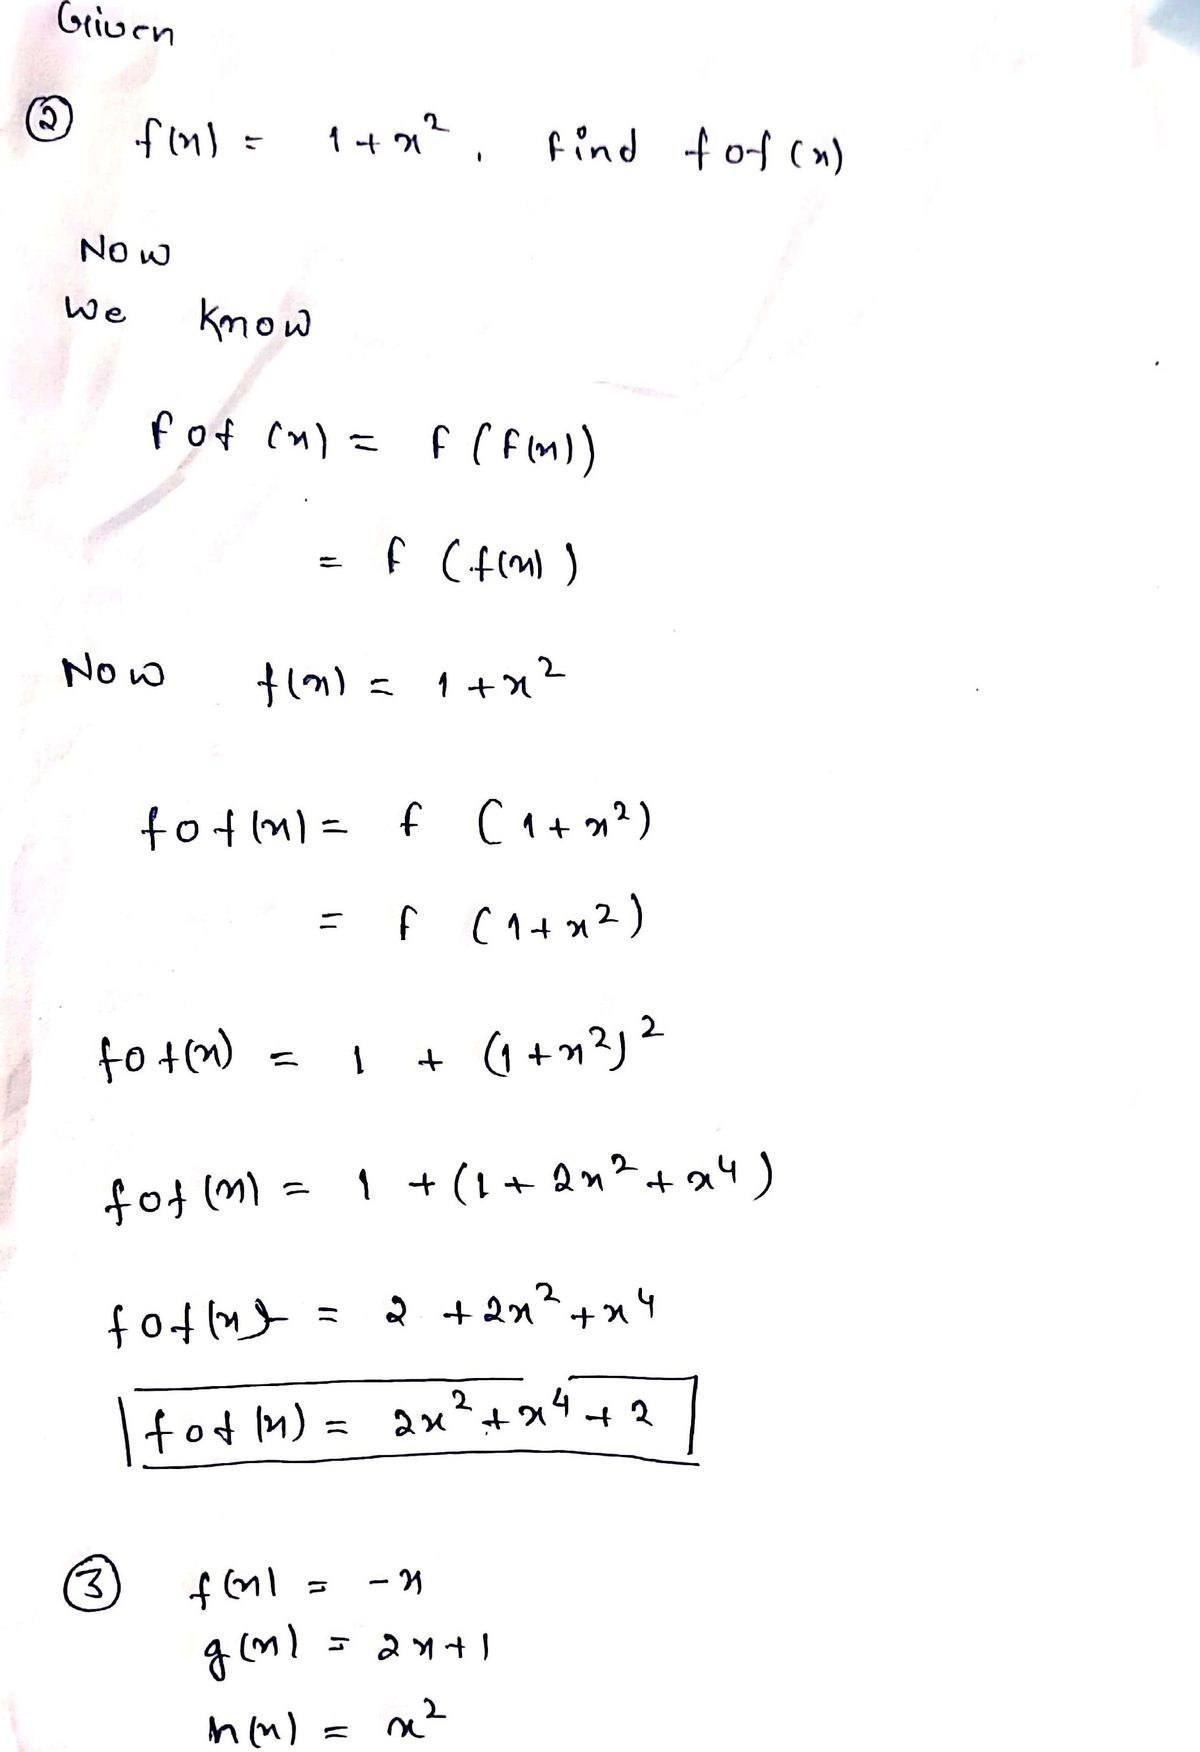 Given
② f(x) = 1 + x², find fof(x)
Now
We know
fof(x) = f(f(x))
= f(f(x))
Now f(x) = 1 + x²
fof(x) = f (1 + x²)
= f (1 + x²)
fof(x) = 1 + (1 + x²)²
fof(x) = 1 + (1 + 2x² + x⁴)
fof(x) = 2 + 2x² + x⁴
fof(x) = 2x² + x⁴ + 2
③ f(x) = -x
g(x) = 2x + 1
h(x) = x²